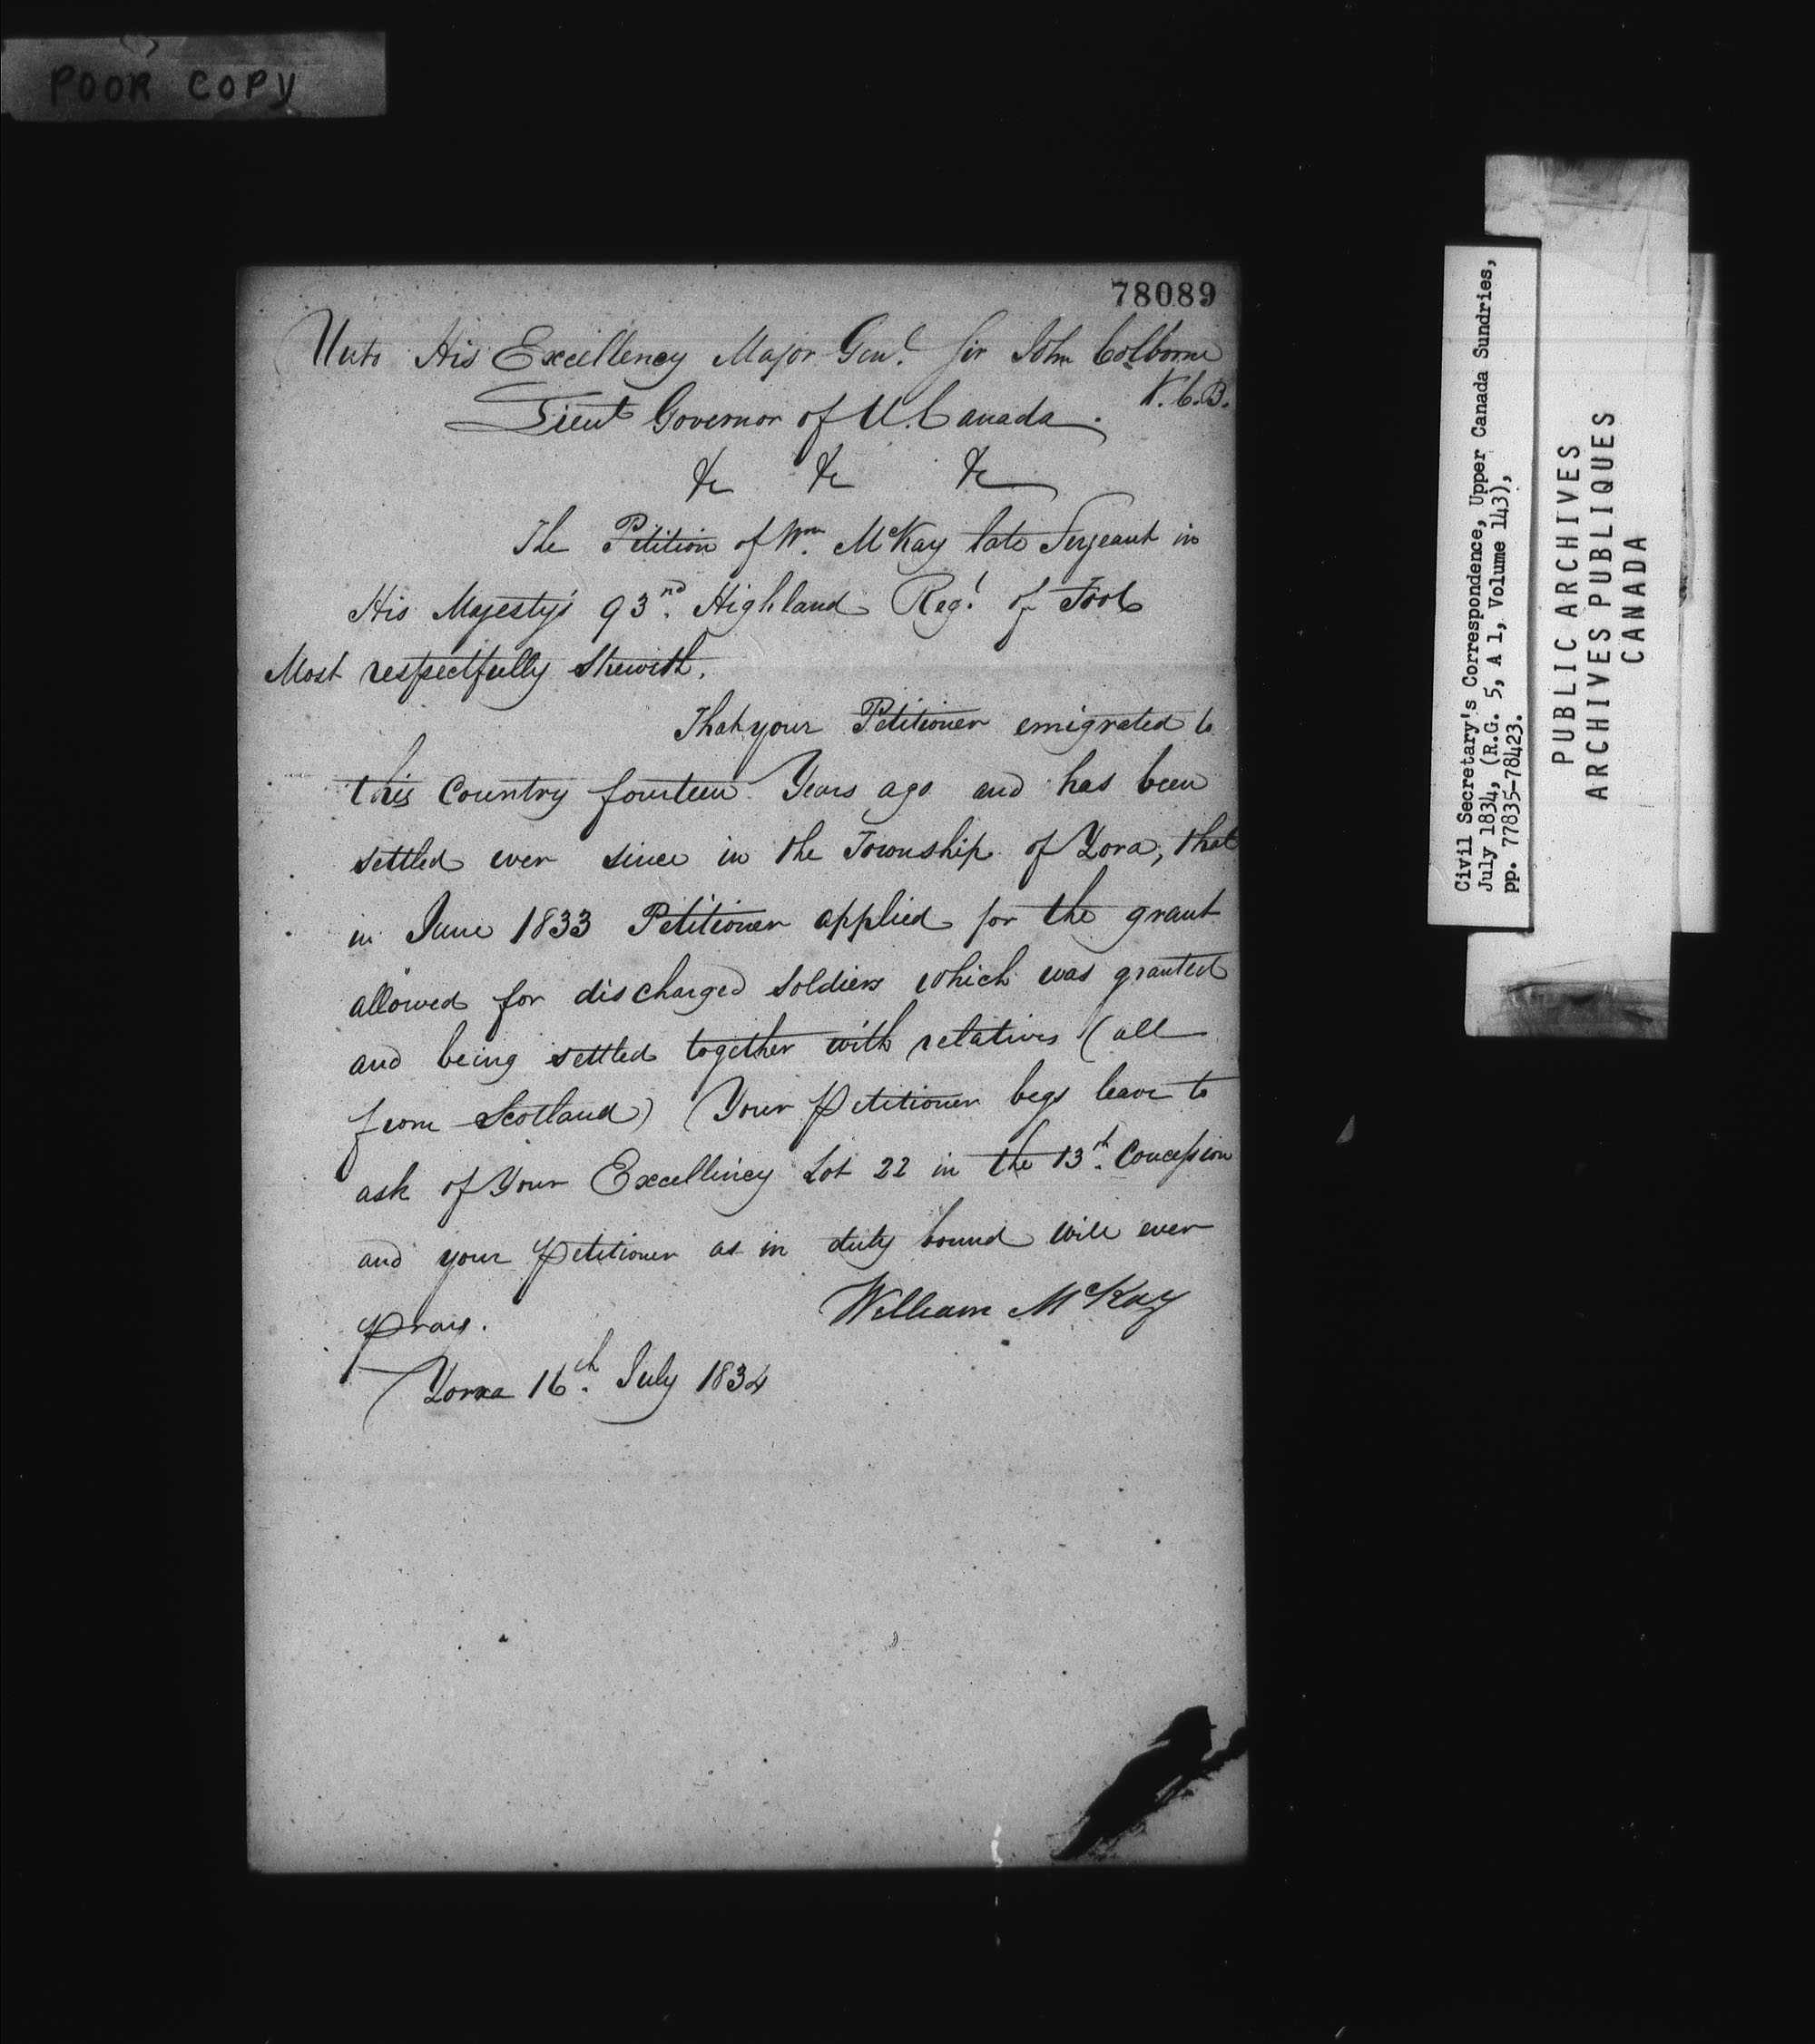 POOR COPY
78089
Unto His Excellency Major Genl. Sir John Colborne
K.C.B.
Lieut Governor of U. Canada.
&c &c &c
The Petition of Wm. McKay late Serjeant in
His Majesty's 93rd. Highland Regt. of Foot
Most respectfully Sheweth.
That your Petitioner emigrated to
this Country fourteen Years ago and has been
settled ever since in the Township of Zora, that
in June 1833 Petitioner applied for the grant
allowed for discharged Soldiers which was granted
and being settled together with relatives (all
from Scotland) Your Petitioner begs leave to
ask of Your Excellency Lot 22 in the 13th. Concession
and your Petitioner as in duty bound will ever
pray.
William McKay
Zorra 16th. July 1834
Civil Secretary's Correspondence, Upper Canada Sundries,
July 1834, (R.G. 5, A 1, Volume 143),
pp. 77835-78423.
PUBLIC ARCHIVES
ARCHIVES PUBLIQUES
CANADA